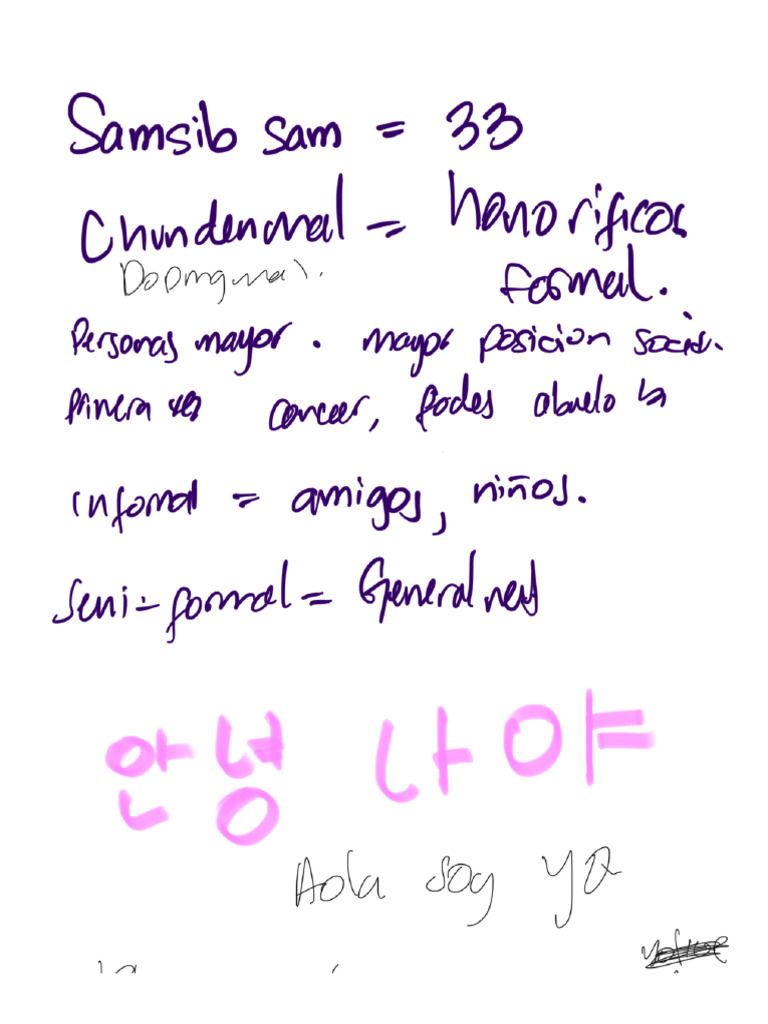 Samsib sam = 33
Chundenmal = honorificos
formal.
Personas mayor. mayor posicion social.
Primera vez conocer, Padres abuelo
infomal = amigos, niños.
Semi-formal =
안녕 나야
Hola soy yo